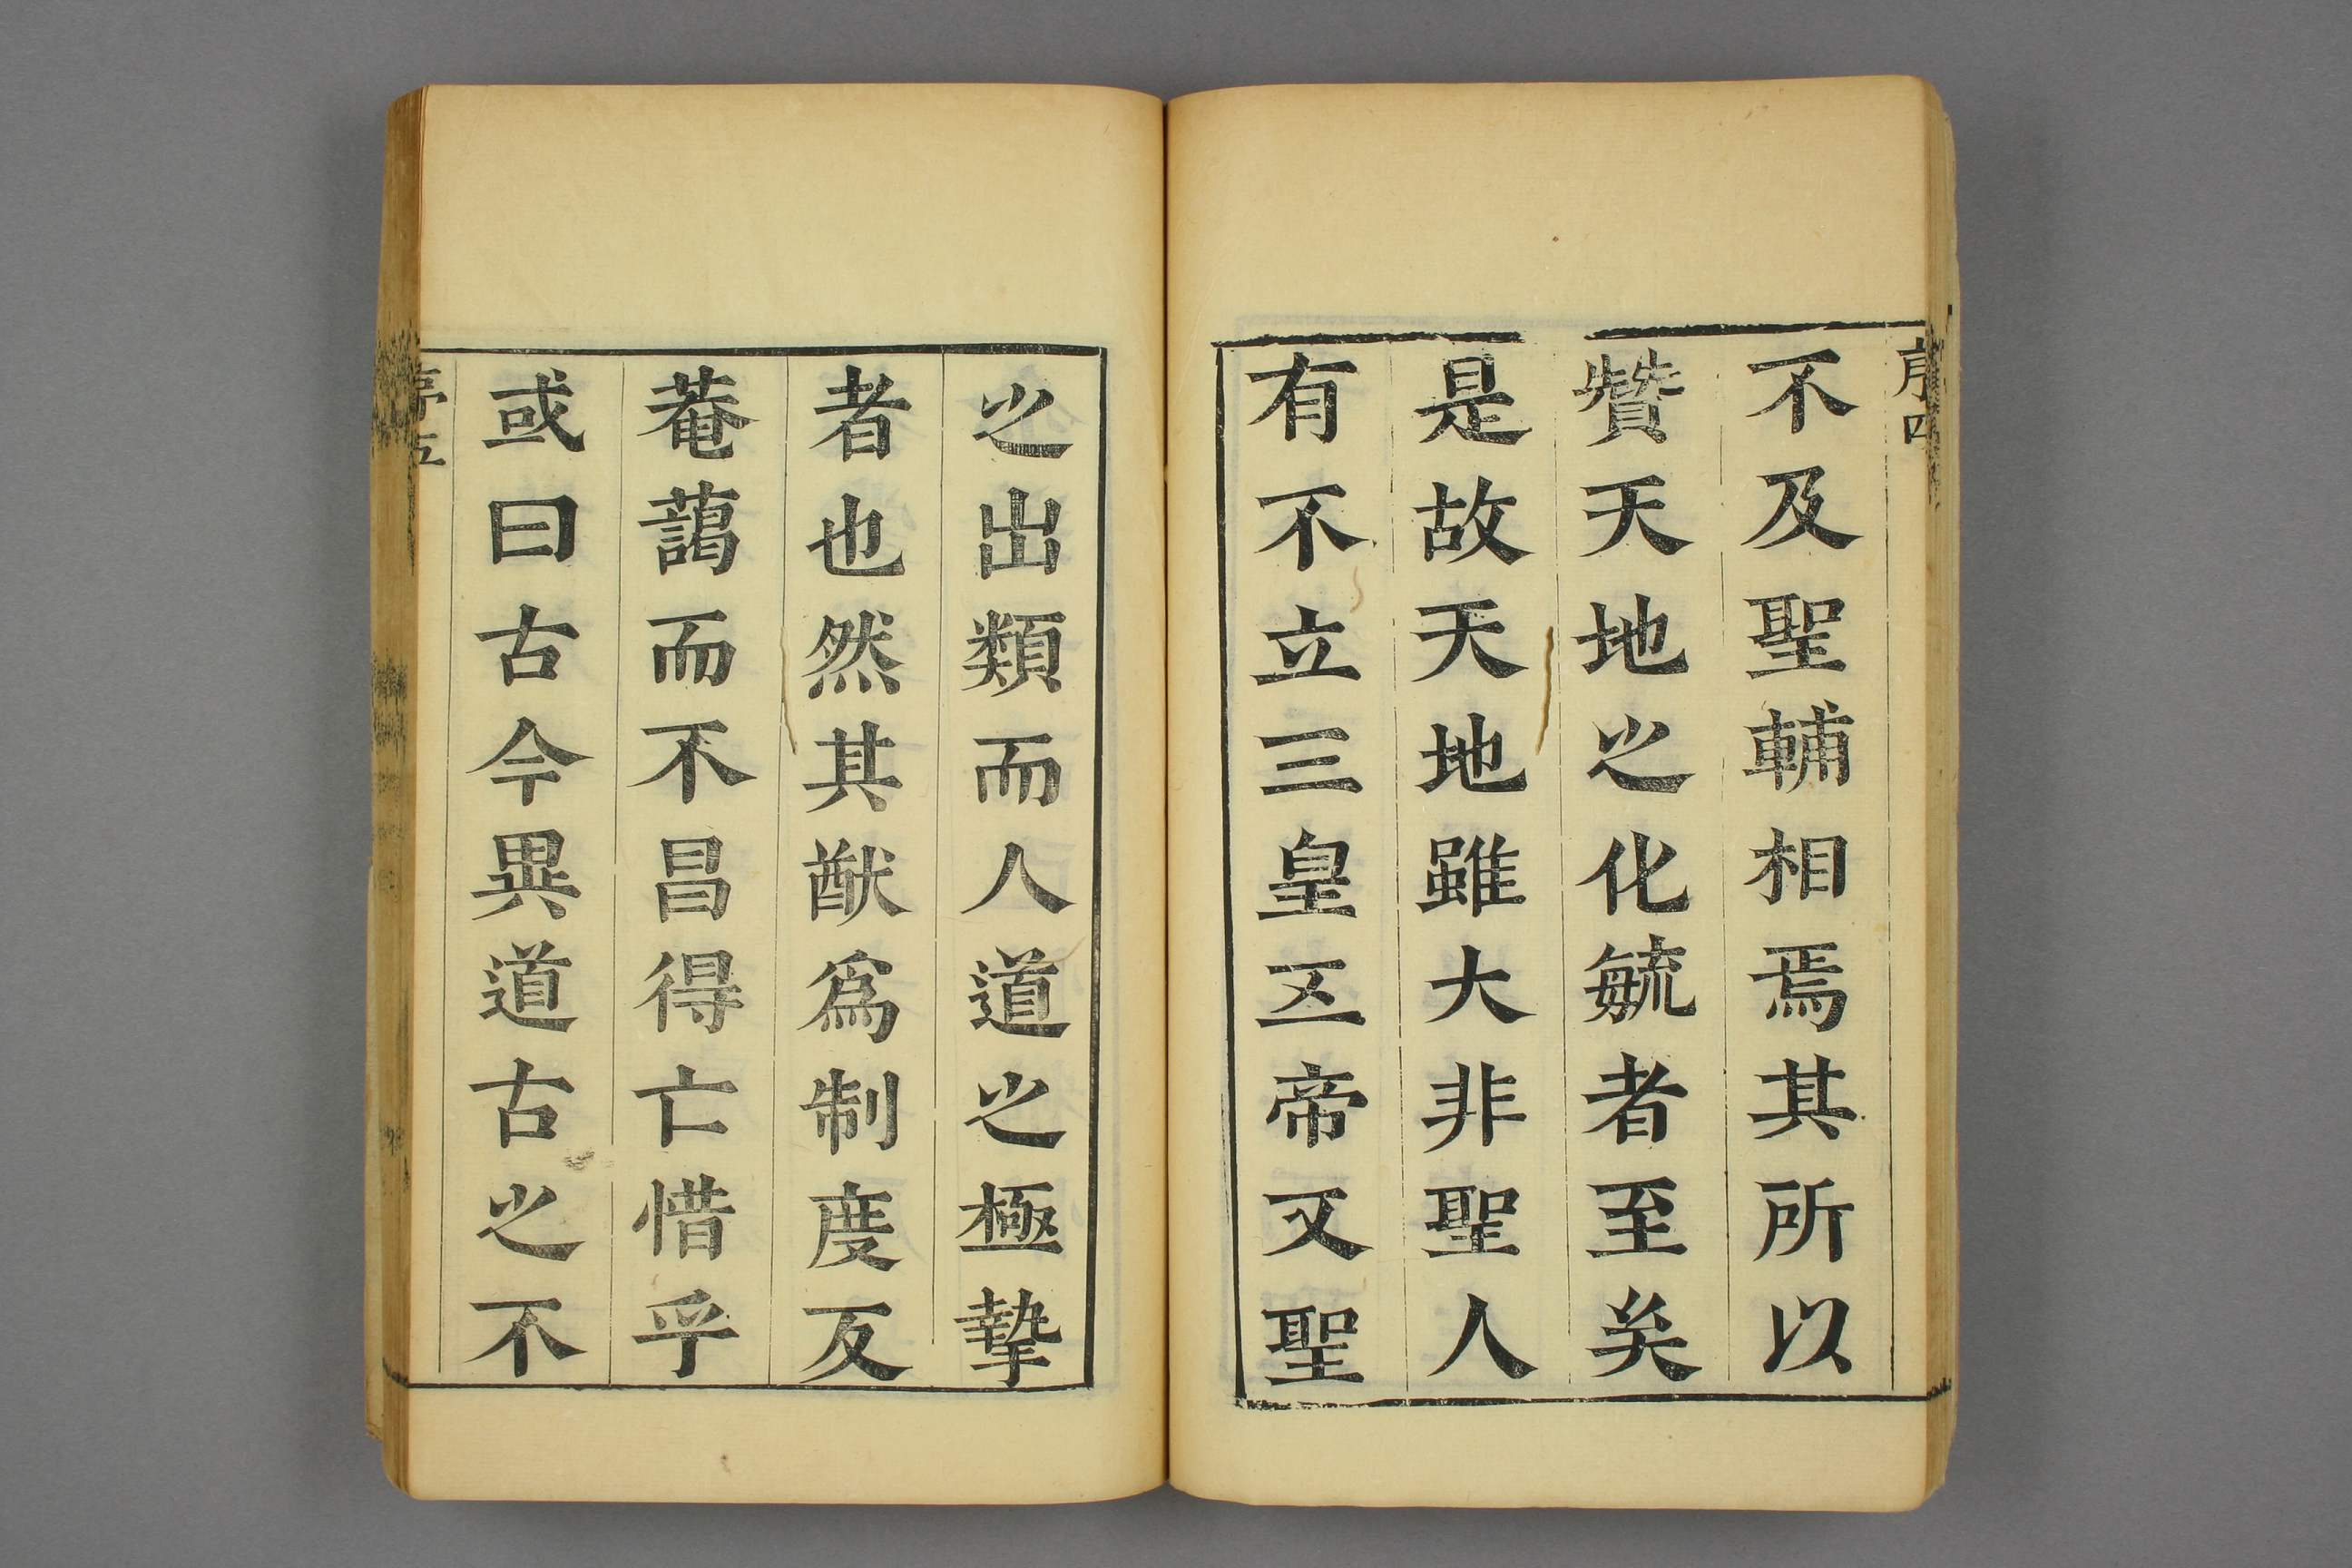 序四
不及聖輔相焉其所以
贊天地之化毓者至矣
是故天地雖大非聖人
有不立三皇五帝又聖
之出類而人道之極摯
者也然其猷爲制度反
菴藹而不昌得亡惜乎
或曰古今異道古之不
序五